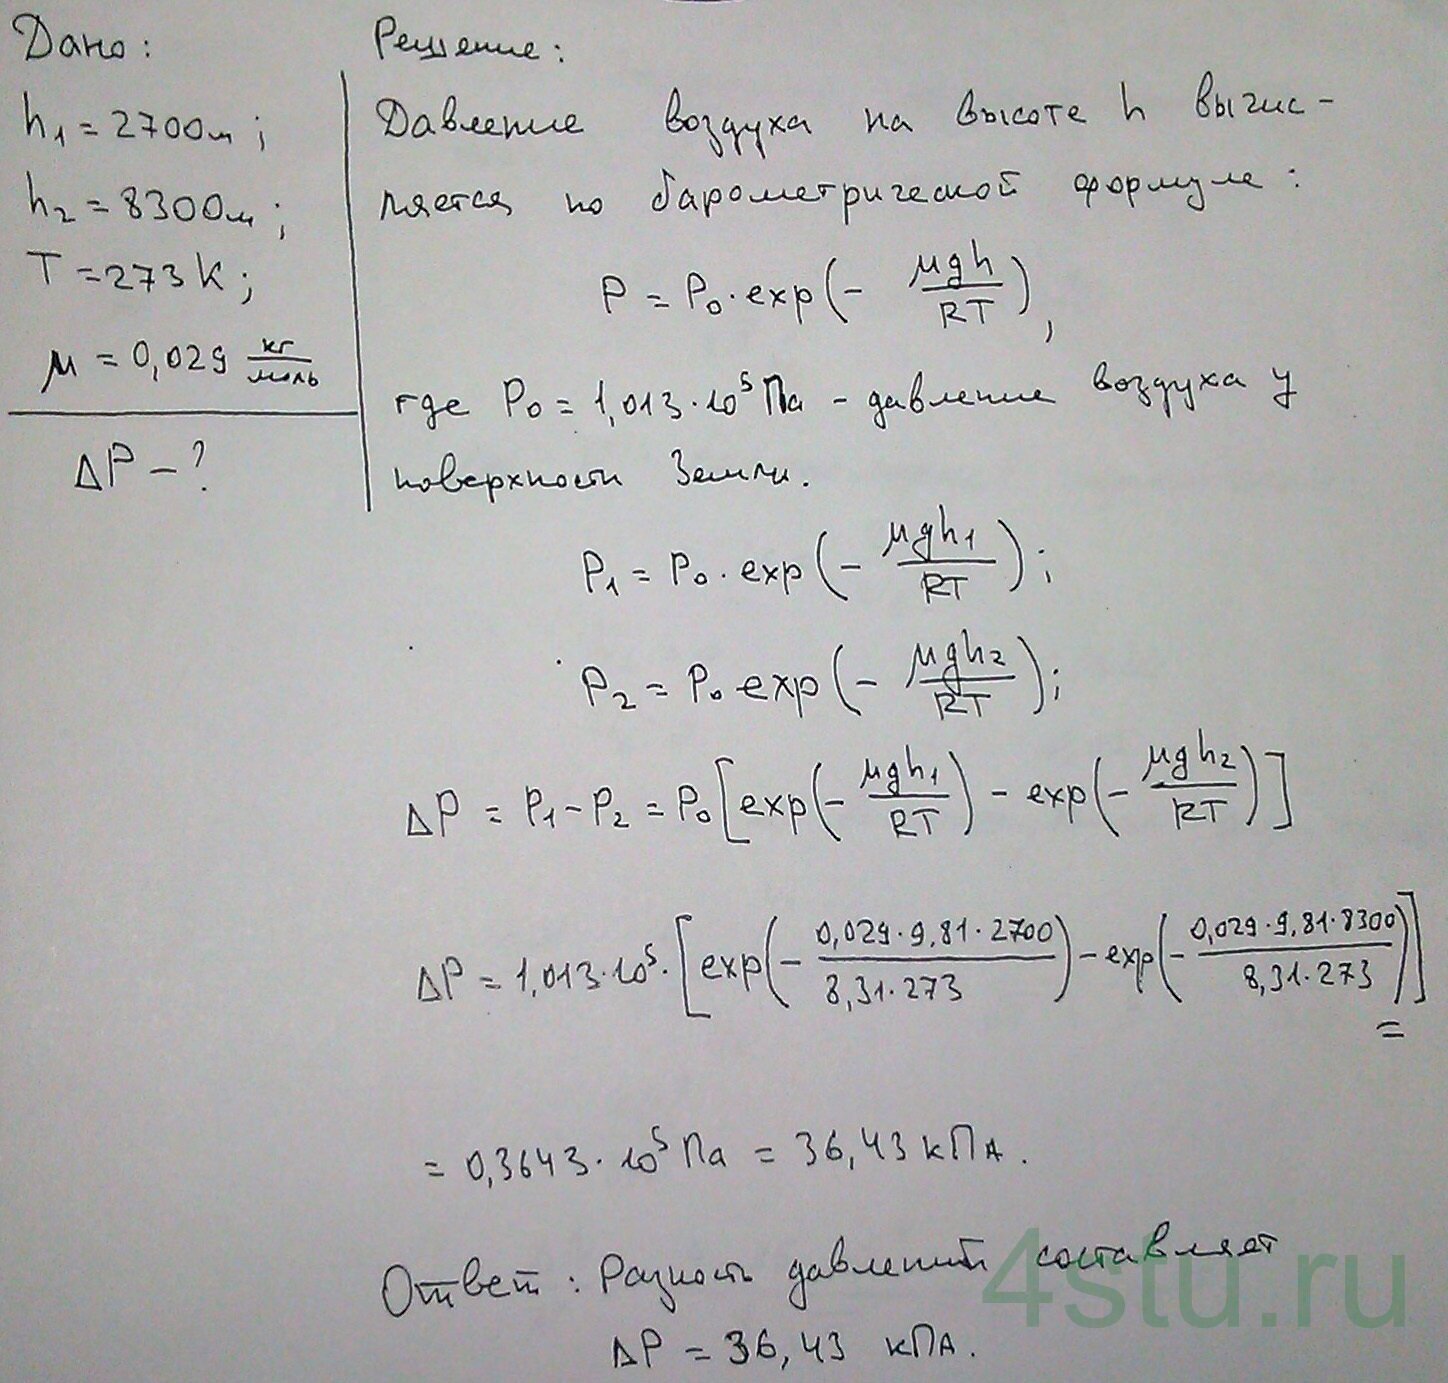 Дано:
h₁ = 2700м;
h₂ = 8300м;
T = 273 К;
μ = 0,029 кг/моль
ΔP - ?
Решение:
Давление воздуха на высоте h вычис-
ляется по барометрической формуле:
P = P₀·exp(- μgh/RT),
где P₀ = 1,013·10⁵ Па - давление воздуха у
поверхности Земли.
P₁ = P₀·exp(- μgh₁/RT);
P₂ = P₀ exp(- μgh₂/RT);
ΔP = P₁-P₂ = P₀[exp(- μgh₁/RT) - exp(- μgh₂/RT)]
ΔP = 1,013·10⁵·[exp(- 0,029·9,81·2700/8,31·273) - exp(- 0,029·9,81·8300/8,31·273)] =
= 0,3643·10⁵ Па = 36,43 кПА.
Ответ: Разность давлений составляет
ΔP = 36,43 кПА.
4stu.ru